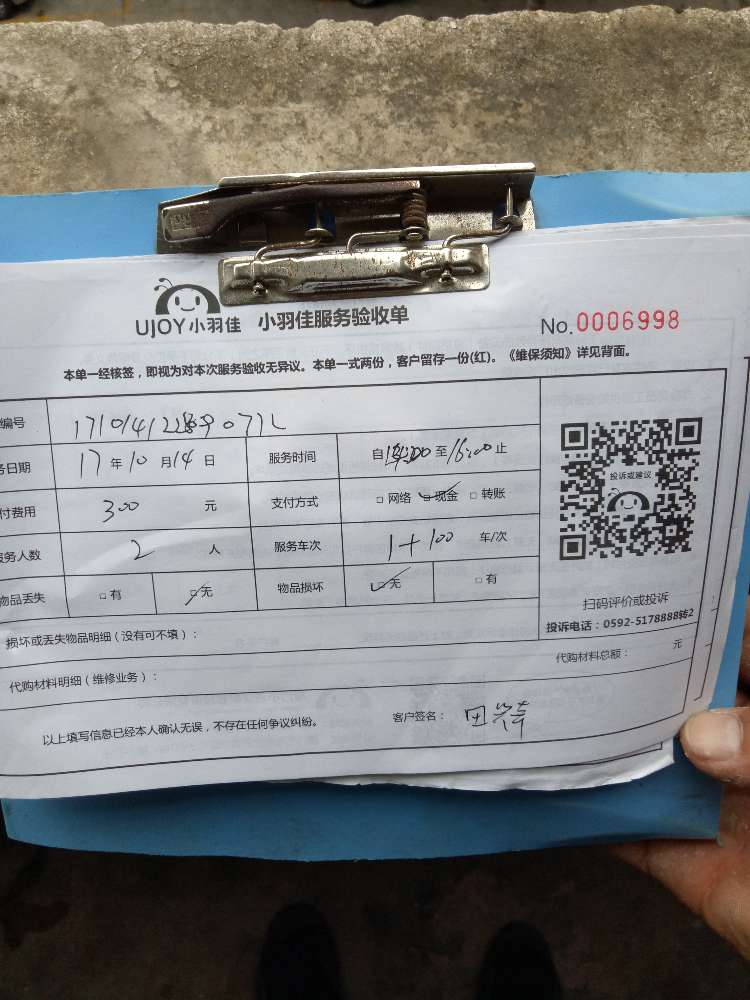 UJOY小羽佳 小羽佳服务验收单
No.0006998
本单一经核签,即视为对本次服务验收无异议。本单一式两份,客户留存一份(红)。《维保须知》详见背面。
编号
务日期 17年10月14日 服务时间 自 至16:00止
付费用 300 元 支付方式 □网络 □现金 □转账
务人数 2 人 服务车次 1+100 车/次
物品丢失 □有 □无 物品损坏 □无 □有
投诉或建议
扫码评价或投诉
投诉电话:0592-5178888转2
损坏或丢失物品明细(没有可不填):
代购材料明细(维修业务): 代购材料总额: 元
以上填写信息已经本人确认无误,不存在任何争议纠纷。 客户签名:田